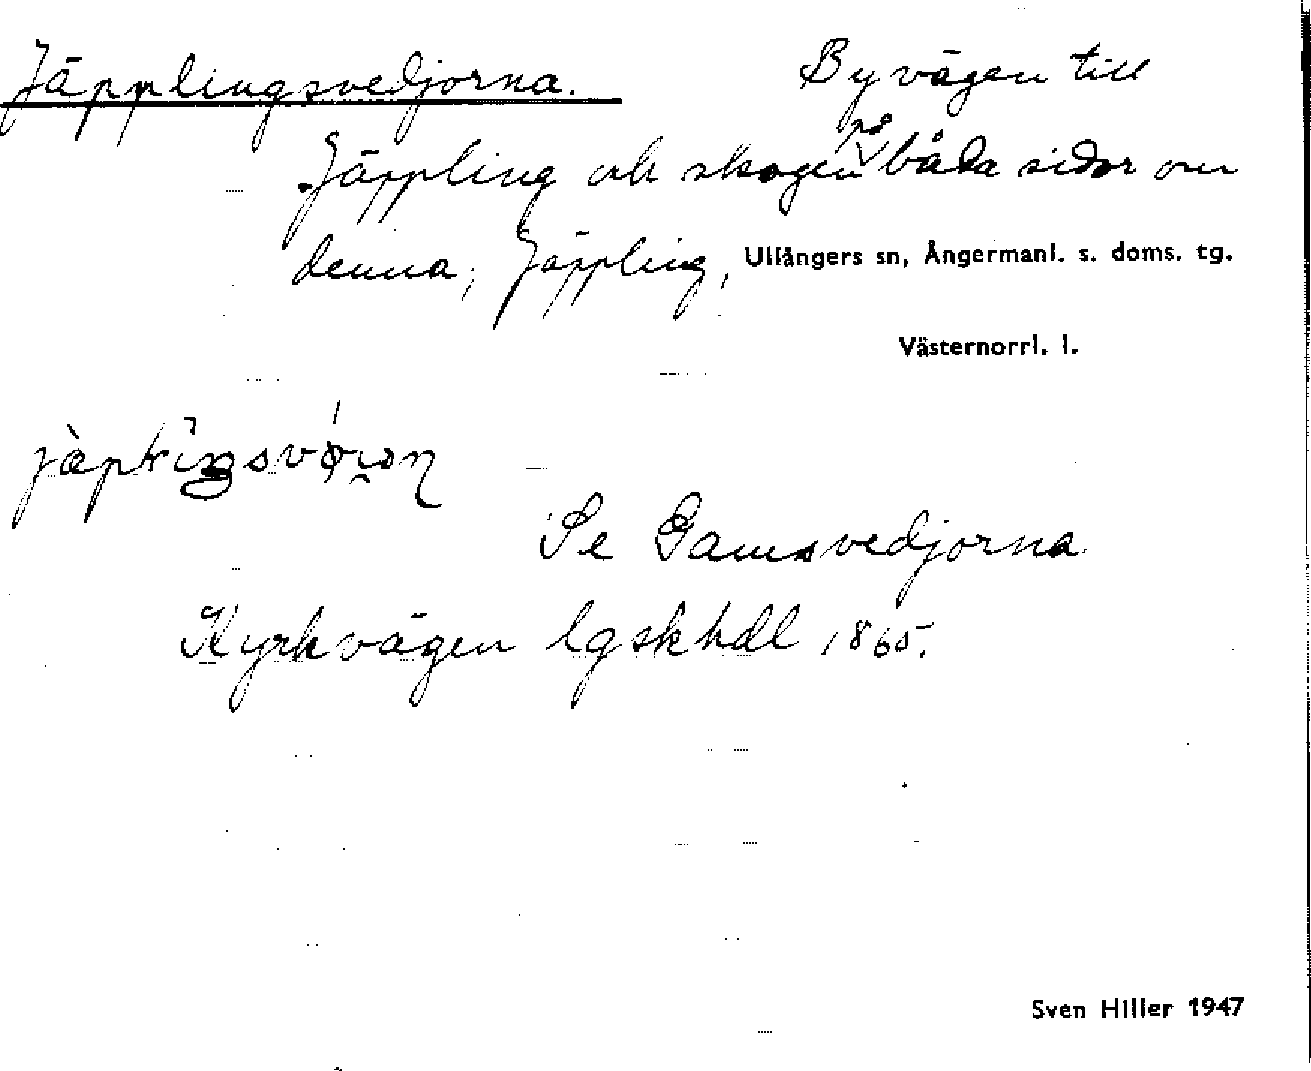 Jäpplingsvedjorna. Byvägen till
Jäppling och skogen på båda sidor om
denna; Jäppling, Ullångers sn, Ångermanl. s. doms. tg.
Västernorrl. l.
Se Gamsvedjorna
Kyrkvägen lgskhdl 1865.
Sven Hiller 1947